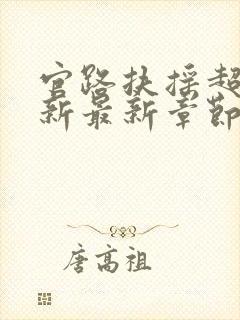 官路扶摇超
新最新章节
唐高祖